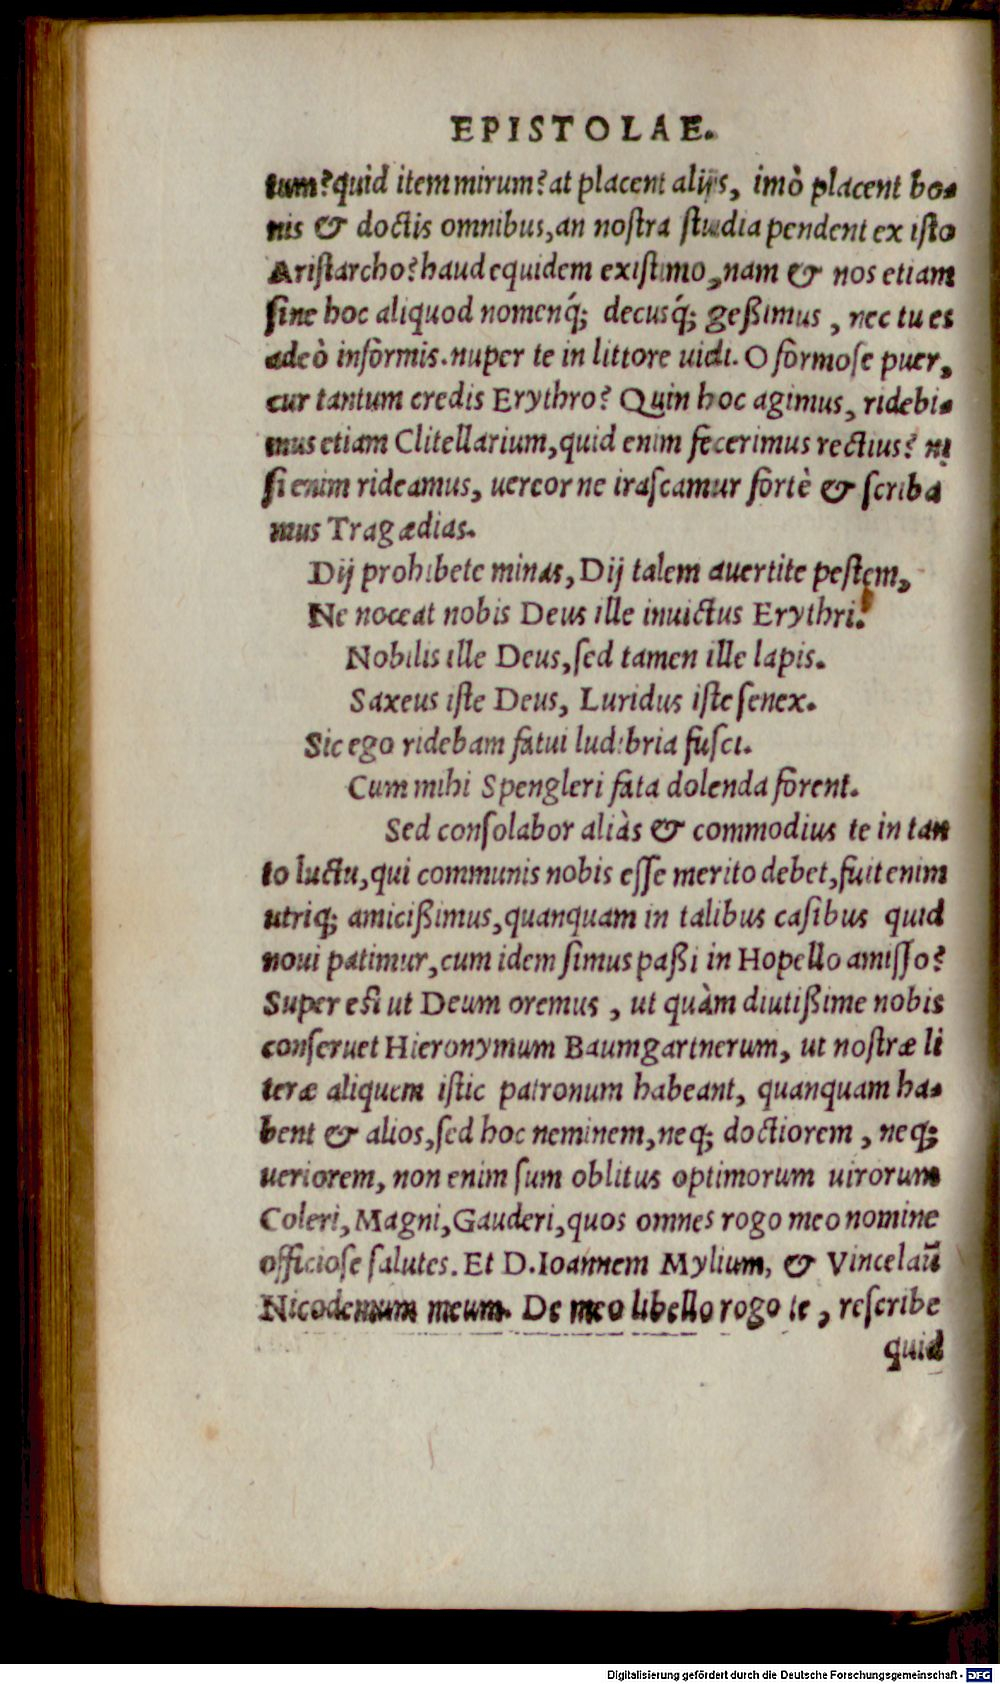 EPISTOLAE.
tum? quid item mirum? at placent alijs, imò placent bo-
nis & doctis omnibus, an nostra studia pendent ex isto
Aristarcho? haud equidem existimo, nam & nos etiam
sine hoc aliquod nomenq́; decusq́; geßimus, nec tu es
adeò informis. nuper te in littore uidi. O formose puer,
cur tantum credis Erythro? Quin hoc agimus, ridebi-
mus etiam Clitellarium, quid enim fecerimus rectius? ni
si enim rideamus, uereor ne irascamur fortè & scriba
mus Tragœdias.
Dij prohibete minas, Dij talem auertite pestem,
Ne noceat nobis Deus ille inuictus Erythri.
Nobilis ille Deus, sed tamen ille lapis.
Saxeus iste Deus, Luridus iste senex.
Sic ego ridebam fatui ludibria fusci.
Cum mihi Spengleri fata dolenda forent.
Sed consolabor aliàs & commodius te in tan
to luctu, qui communis nobis esse merito debet, fuit enim
utriq; amicißimus, quanquam in talibus casibus quid
noui patimur, cum idem simus paßi in Hopello amisso?
Super est ut Deum oremus, ut quàm diutißime nobis
conseruet Hieronymum Baumgartnerum, ut nostræ li
teræ aliquem istic patronum habeant, quanquam ha-
bent & alios, sed hoc neminem, neq; doctiorem, neq;
ueriorem, non enim sum oblitus optimorum uirorum
Coleri, Magni, Gauderi, quos omnes rogo meo nomine
officiose salutes. Et D. Ioannem Mylium, & Vincelaũ
Nicodemum meum. De meo libello rogo te, rescribe
quid
Digitalisierung gefördert durch die Deutsche Forschungsgemeinschaft - DFG